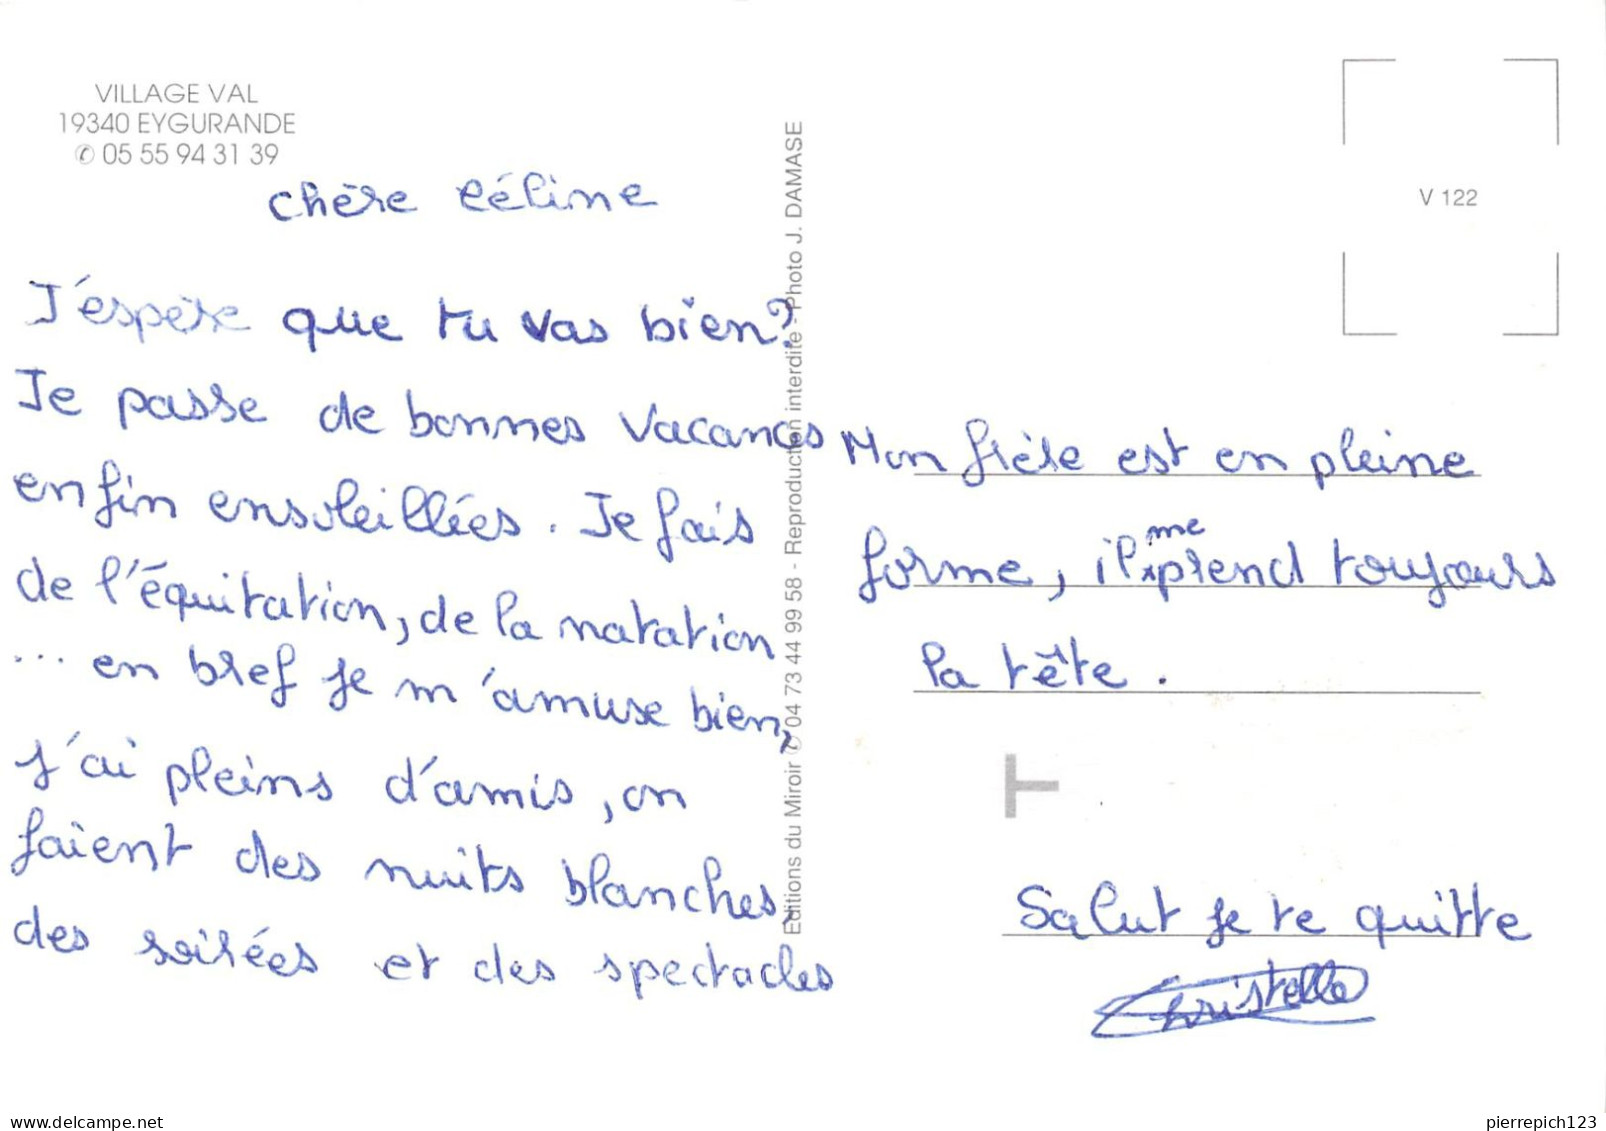 VILLAGE VAL
19340 EYGURANDE
✆ 05 55 94 31 39
Chère Céline
J'espère que tu vas bien?
Je passe de bonnes vacances
enfin ensoleillées. Je fais
de l'équitation, de la natation
... en bref je m'amuse bien,
j'ai pleins d'amis, on
faient des nuits blanches,
des soirées et des spectacles
Editions du Miroir ✆ 04 73 44 99 58 - Reproduction interdite - Photo J. DAMASE
V 122
Mon frère est en pleine
forme, il me prend toujours
la tête.
T
Salut je te quitte
Christelle
delcampe.net
pierrepich123